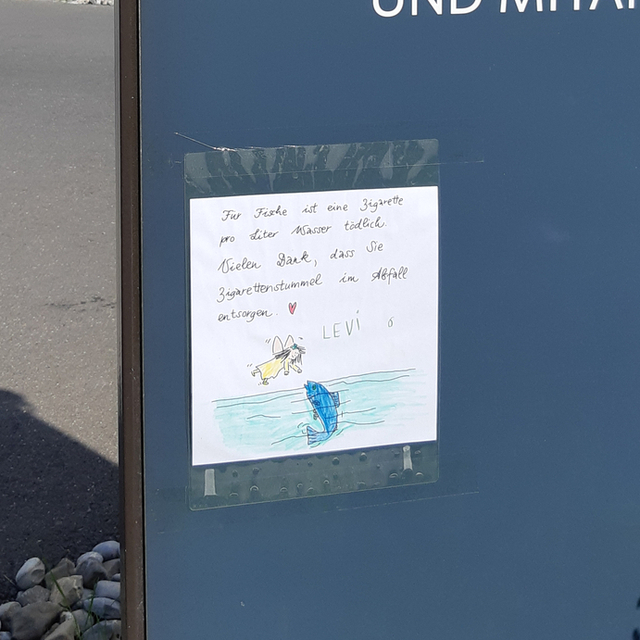 UND MITAR
Für Fische ist eine Zigarette
pro Liter Wasser tödlich.
Vielen Dank, dass Sie
Zigarettenstummel im Abfall
entsorgen.
LEVI 6